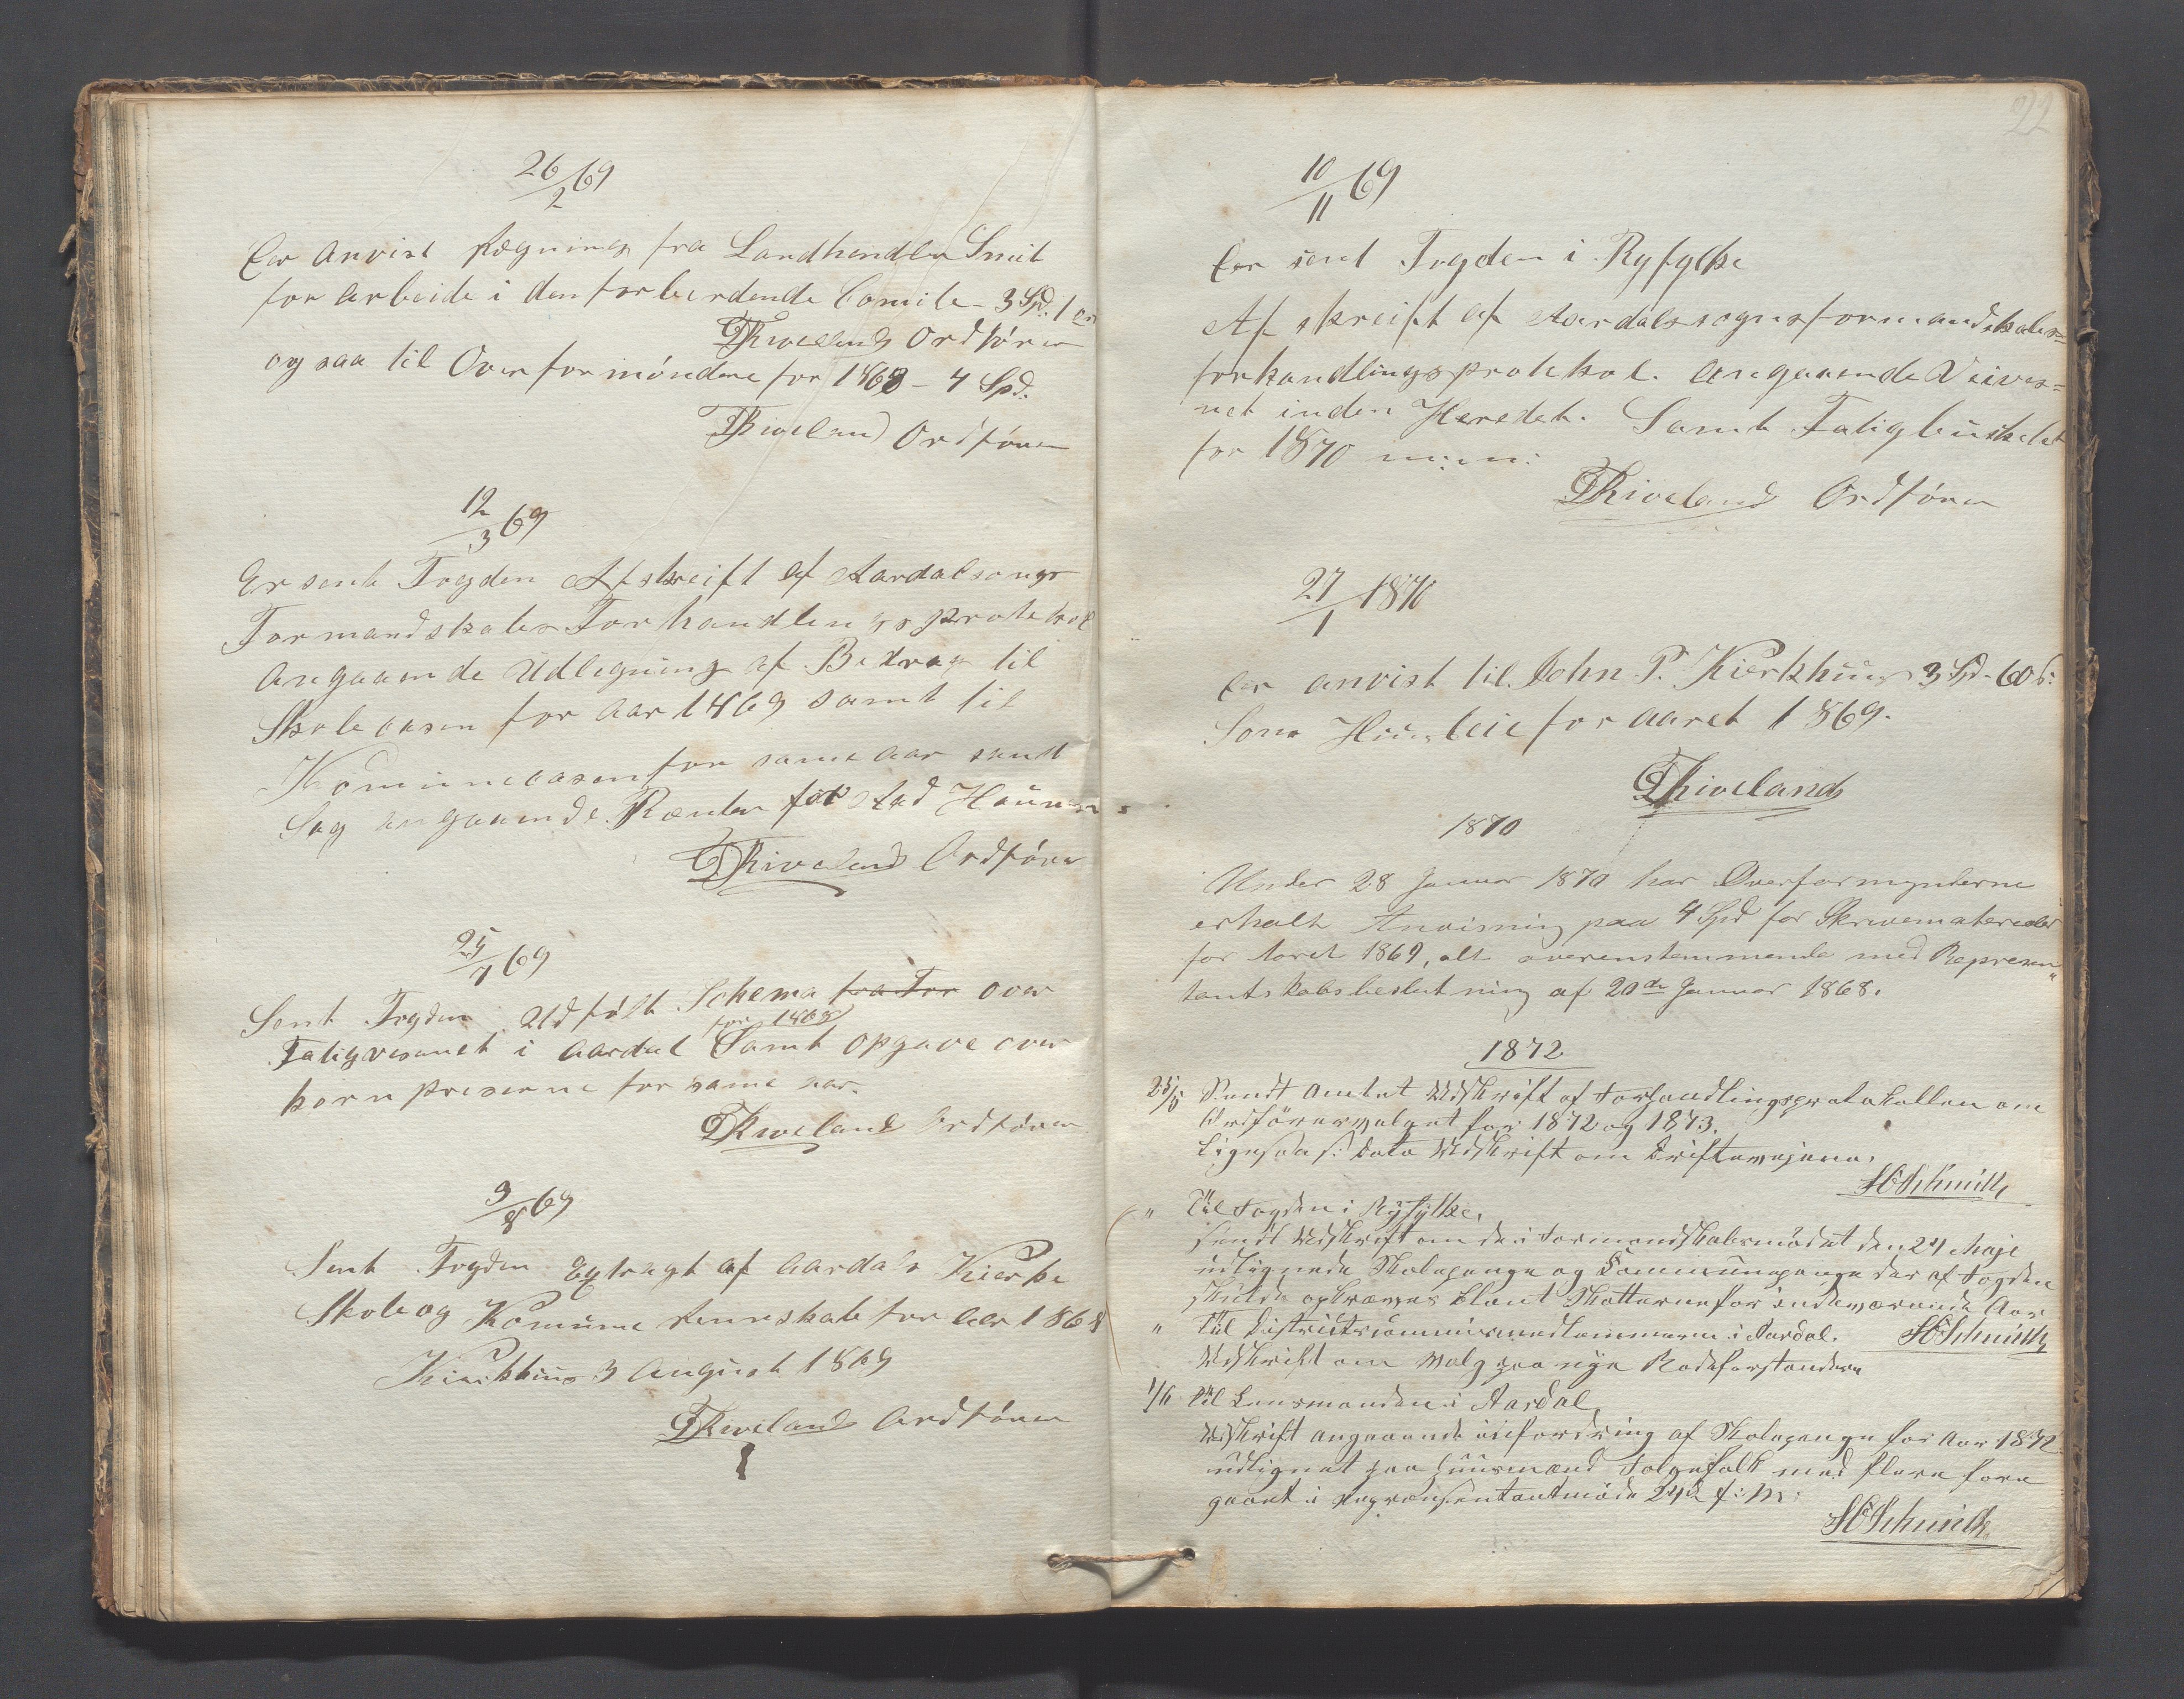 26/2 69
Er Anvist Regning fra Landhandler Smit
for Arbeide i den forberdende Comite - 3 Spd. 1 ort
TRiveland Ordförer
og saa til Overformöndere for 1868 - 4 Spd.
TRiveland Ordförer
12/3 69
Er sent Fogden Afskreift af Aardalsongs
Formandskabes Forhandlings protekol
Angaaende Udlegning af Bedrag til
Skolecasen for Aar 1869 samt til
Komunecasen for same Aar samt
Sag angaaende Renter for Aad Haun
TRiveland Ordförer
25/7 69
Sent Fogden Udfült Schema fra For over
for 1868
Fatigvesenet i Aardal Samt opgave over
kornpreserne for same aar.
TRiveland Ordförer
3/8 69
Sent Fogden Extragt af Aardals Kierke
Skole og Komune Renskab for Aar 1868
Kierkhus 3 August 1869
TRiveland Ordförer
22
10/11 69
Er sent Fogden i Ryfylke
Afskreift af Aardalssognsformandskabes=
forhandlingsprotekol. Angaaende Veives=
net inden Heredet. Samt Fatigbuskelet
for 1870 m:m:
TRiveland Ordförer
27/1 1870
Er anvist til John P. Kierkhuus 3 Spd. 60 s:
Som Husleie for aaret 1869.
TRiveland
1870
Under 28 Januar 1870 har Overformynderne
erholt Anvisning paa 4 Spd for Skrivematerialer
for Aaret 1869, alt overenstemmende med Represen"
tantskabsbeslutning af 20de Januar 1868.
1872
25/5 Sendt Amtet Udskrift af Forhandlingsprotokollen om
Ordförervalget for 1872 og 1873.
Ligesaa s: Dato Udskrift om Driftevejene.
HCSchmidt
" Til Fogden i Ryfylke,
sendt Udskrift om de i Formandskabsmödet den 24 Maje
udlignede Skolepenge og Communepenge der af Fogden
skulde opkræves blant Skatterne for indeværende Aar
HCSchmidt
" Til Districtscommissmedlemmerne i Aardal.
Udskrift om Valg paa nye Rodeforstandere
1/6 Til Lensmanden i Aardal
Udskrift angaaende infordring af Skolepenge for Aar 1872
udlignet paa Huusmænd Folgefolk med flere fore
gaaet i Repræsentantmöde 24de f: M:
HCSchmidt